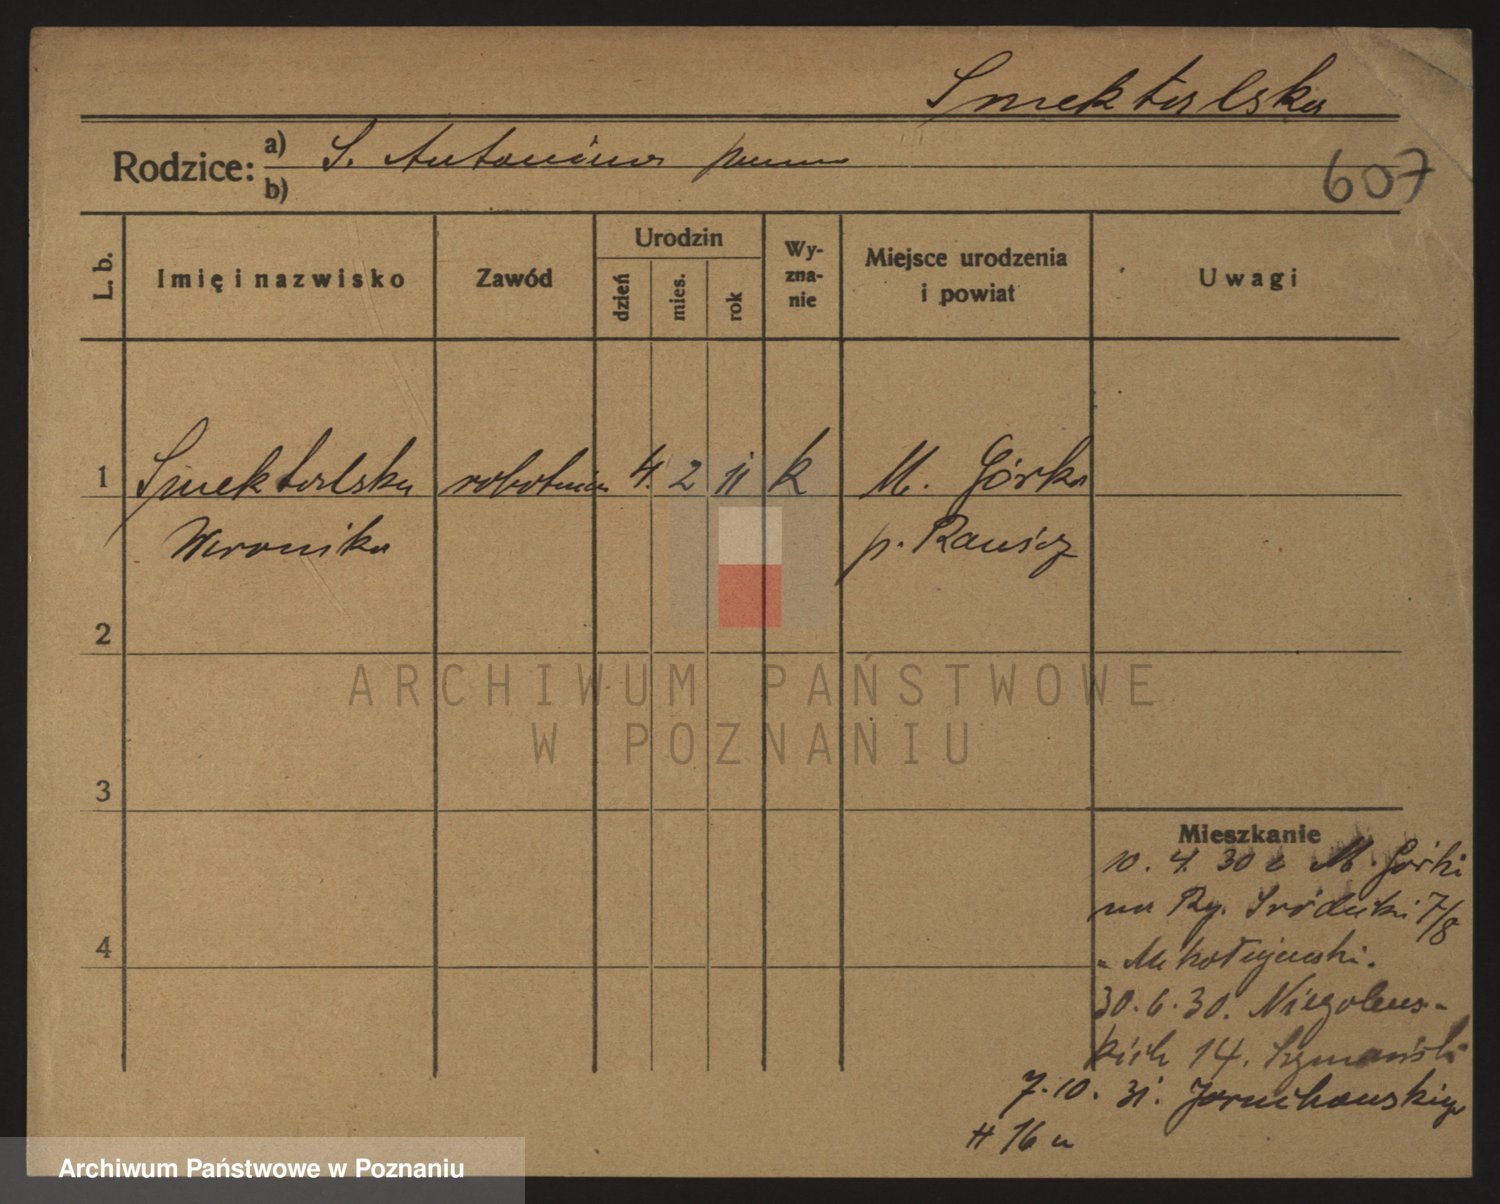 Smektalska
Rodzice: a) S. Antonina panna
b)
607
L. b.
Imię i nazwisko
Zawód
Urodzin
dzień
mies.
rok
Wy-
zna-
nie
Miejsce urodzenia
i powiat
Uwagi
1 Smektalska robotnica 4. 2 11 k M. Górka
Weronika p. Rawicz
2
ARCHIWUM PAŃSTWOWE
W POZNANIU
3
Mieszkanie
10. 4. 30 z M. Górki
na Ry. Śródecki 7/8
4
30. 6. 30. Niegolews-
kich 14. Szymański
7. 10. 31. Jarochowskiego
16
Archiwum Państwowe w Poznaniu